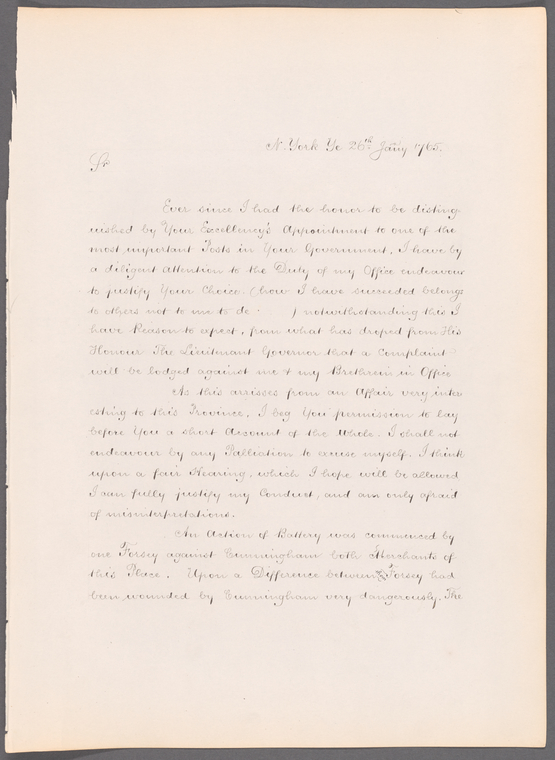 N. York Ye 26th Jany 1765.
Sr
Ever since I had the honor to be disting-
uished by Your Excellency's Appointment to one of the
most important Posts in Your Government, I have by
a diligant attention to the Duty of my Office endeavour
to justify Your Choice. (how I have succeeded belongs
to others not to me to de ) notwithstanding this I
have Reason to apect, from what has droped from His
Honour The Lieutenant Governor that a Complaint
will be lodged against me & my Brethrein in Office
As this arrisses from an Affair very inter
esting to this Province, I beg You permission to lay
before You a short Account of the Whole. I shall not
endeavour by any Palliation to excuse myself. I think
upon a fair Hearing, which I hope will be allowed
I can fully justify my Conduct, and am only afraid
of misinterpretations.
An Action of Battery was commenced by
one Forsey against Cunningham both Merchants of
this Place. Upon a Difference between Forsey had
been wounded by Cunningham very dangerously. The